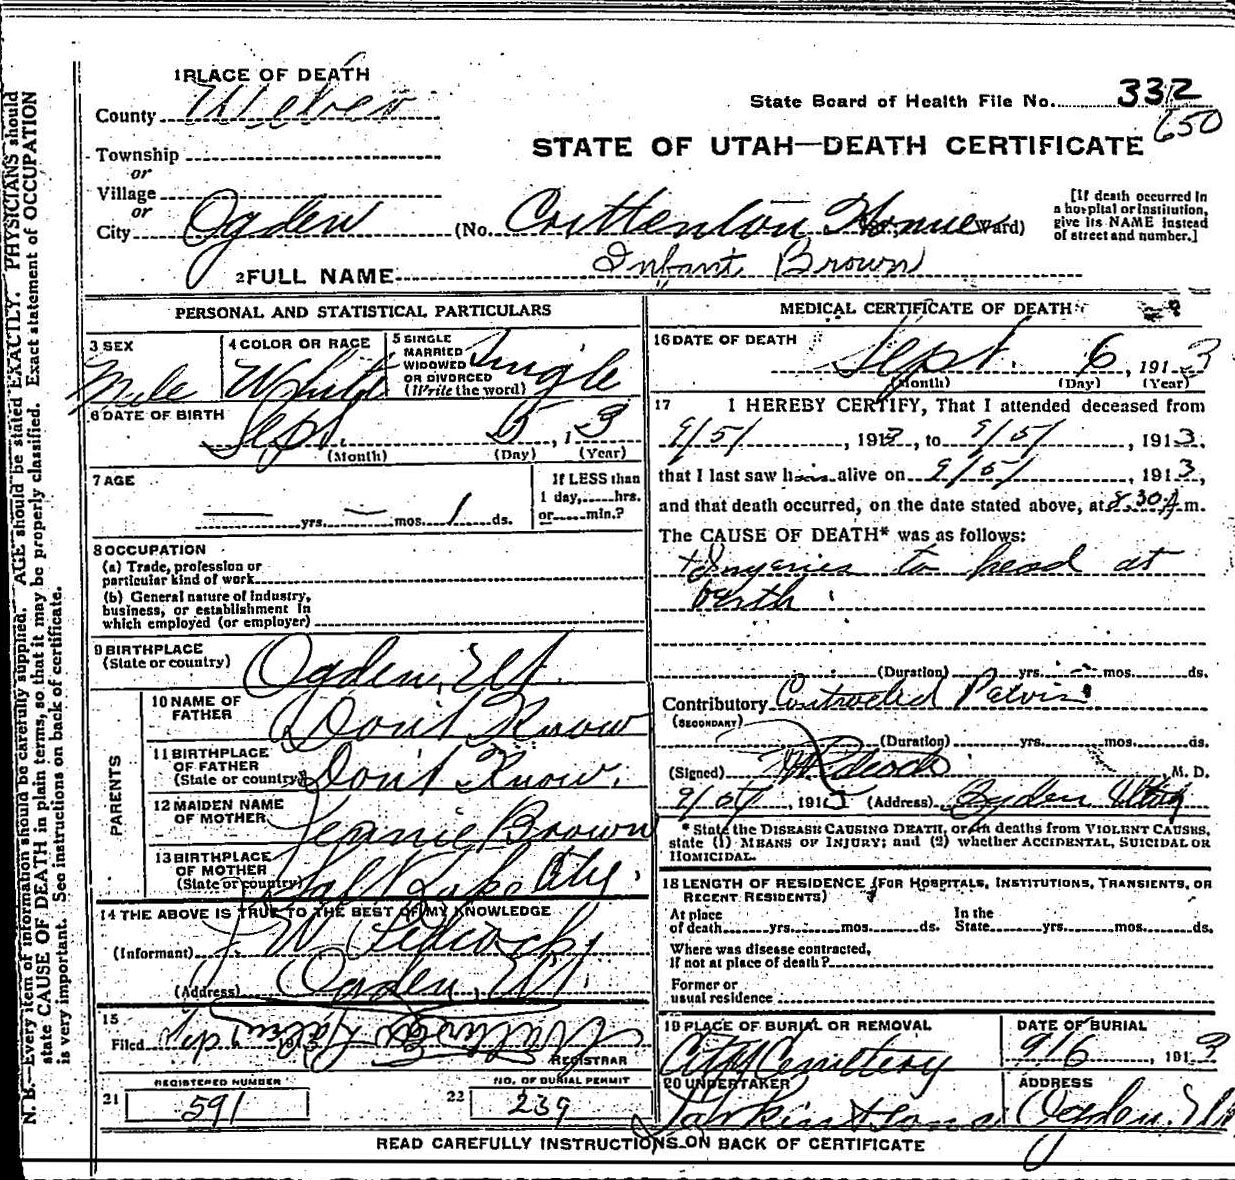 1 PLACE OF DEATH
County Weber
State Board of Health File No. 332
650
Township
or
Village
or
STATE OF UTAH—DEATH CERTIFICATE
City Ogden (No. Crittenton Home Ward)
[If death occurred in
a hospital or institution,
give its NAME instead
of street and number.]
2 FULL NAME Infant Brown
PERSONAL AND STATISTICAL PARTICULARS
3 SEX
Male
4 COLOR OR RACE
White
5 SINGLE
MARRIED
WIDOWED
OR DIVORCED
(Write the word)
Single
6 DATE OF BIRTH
Sept. 5, 13
(Month) (Day) (Year)
7 AGE
— yrs. — mos. 1 ds.
If LESS than
1 day, hrs.
or min.?
8 OCCUPATION
(a) Trade, profession or
particular kind of work
(b) General nature of industry,
business, or establishment in
which employed (or employer)
9 BIRTHPLACE
(State or country)
Ogden, Ut.
PARENTS
10 NAME OF
FATHER
Don't Know
11 BIRTHPLACE
OF FATHER
(State or country)
Don't Know.
12 MAIDEN NAME
OF MOTHER
Jennie Brown
13 BIRTHPLACE
OF MOTHER
(State or country)
Salt Lake City.
14 THE ABOVE IS TRUE TO THE BEST OF MY KNOWLEDGE
(Informant) W
(Address) Ogden, Ut.
15
Filed Sep 191
REGISTRAR
REGISTERED NUMBER
21 591
NO. OF BURIAL PERMIT
22 239
MEDICAL CERTIFICATE OF DEATH
16 DATE OF DEATH
Sept. 6, 1913
(Month) (Day) (Year)
17 I HEREBY CERTIFY, That I attended deceased from
9/5/, 1913, to 9/5/, 1913,
that I last saw him alive on 9/5/ 1913,
and that death occurred, on the date stated above, at 8.30 A.m.
The CAUSE OF DEATH* was as follows:
Ingeries to head at
berth
(Duration) yrs. mos. ds.
Contributory Contracted Pelvis
(SECONDARY)
(Duration) yrs. mos. ds.
(Signed) M. D.
9/, 1913 (Address) Ogden Utah
* State the DISEASE CAUSING DEATH, or in deaths from VIOLENT CAUSES,
state (1) MEANS OF INJURY; and (2) whether ACCIDENTAL, SUICIDAL OR
HOMICIDAL.
18 LENGTH OF RESIDENCE (FOR HOSPITALS, INSTITUTIONS, TRANSIENTS, OR
RECENT RESIDENTS)
At place
of death yrs. mos. ds.
In the
State yrs. mos. ds.
Where was disease contracted,
if not at place of death?
Former or
usual residence
19 PLACE OF BURIAL OR REMOVAL
City Cemetery
DATE OF BURIAL
9/6, 1913
20 UNDERTAKER
Larkin & Sons
ADDRESS
Ogden, Ut
READ CAREFULLY INSTRUCTIONS ON BACK OF CERTIFICATE
N. B.—Every item of information should be carefully supplied. AGE should be stated EXACTLY. PHYSICIANS should
state CAUSE OF DEATH in plain terms, so that it may be properly classified. Exact statement of OCCUPATION
is very important. See instructions on back of certificate.